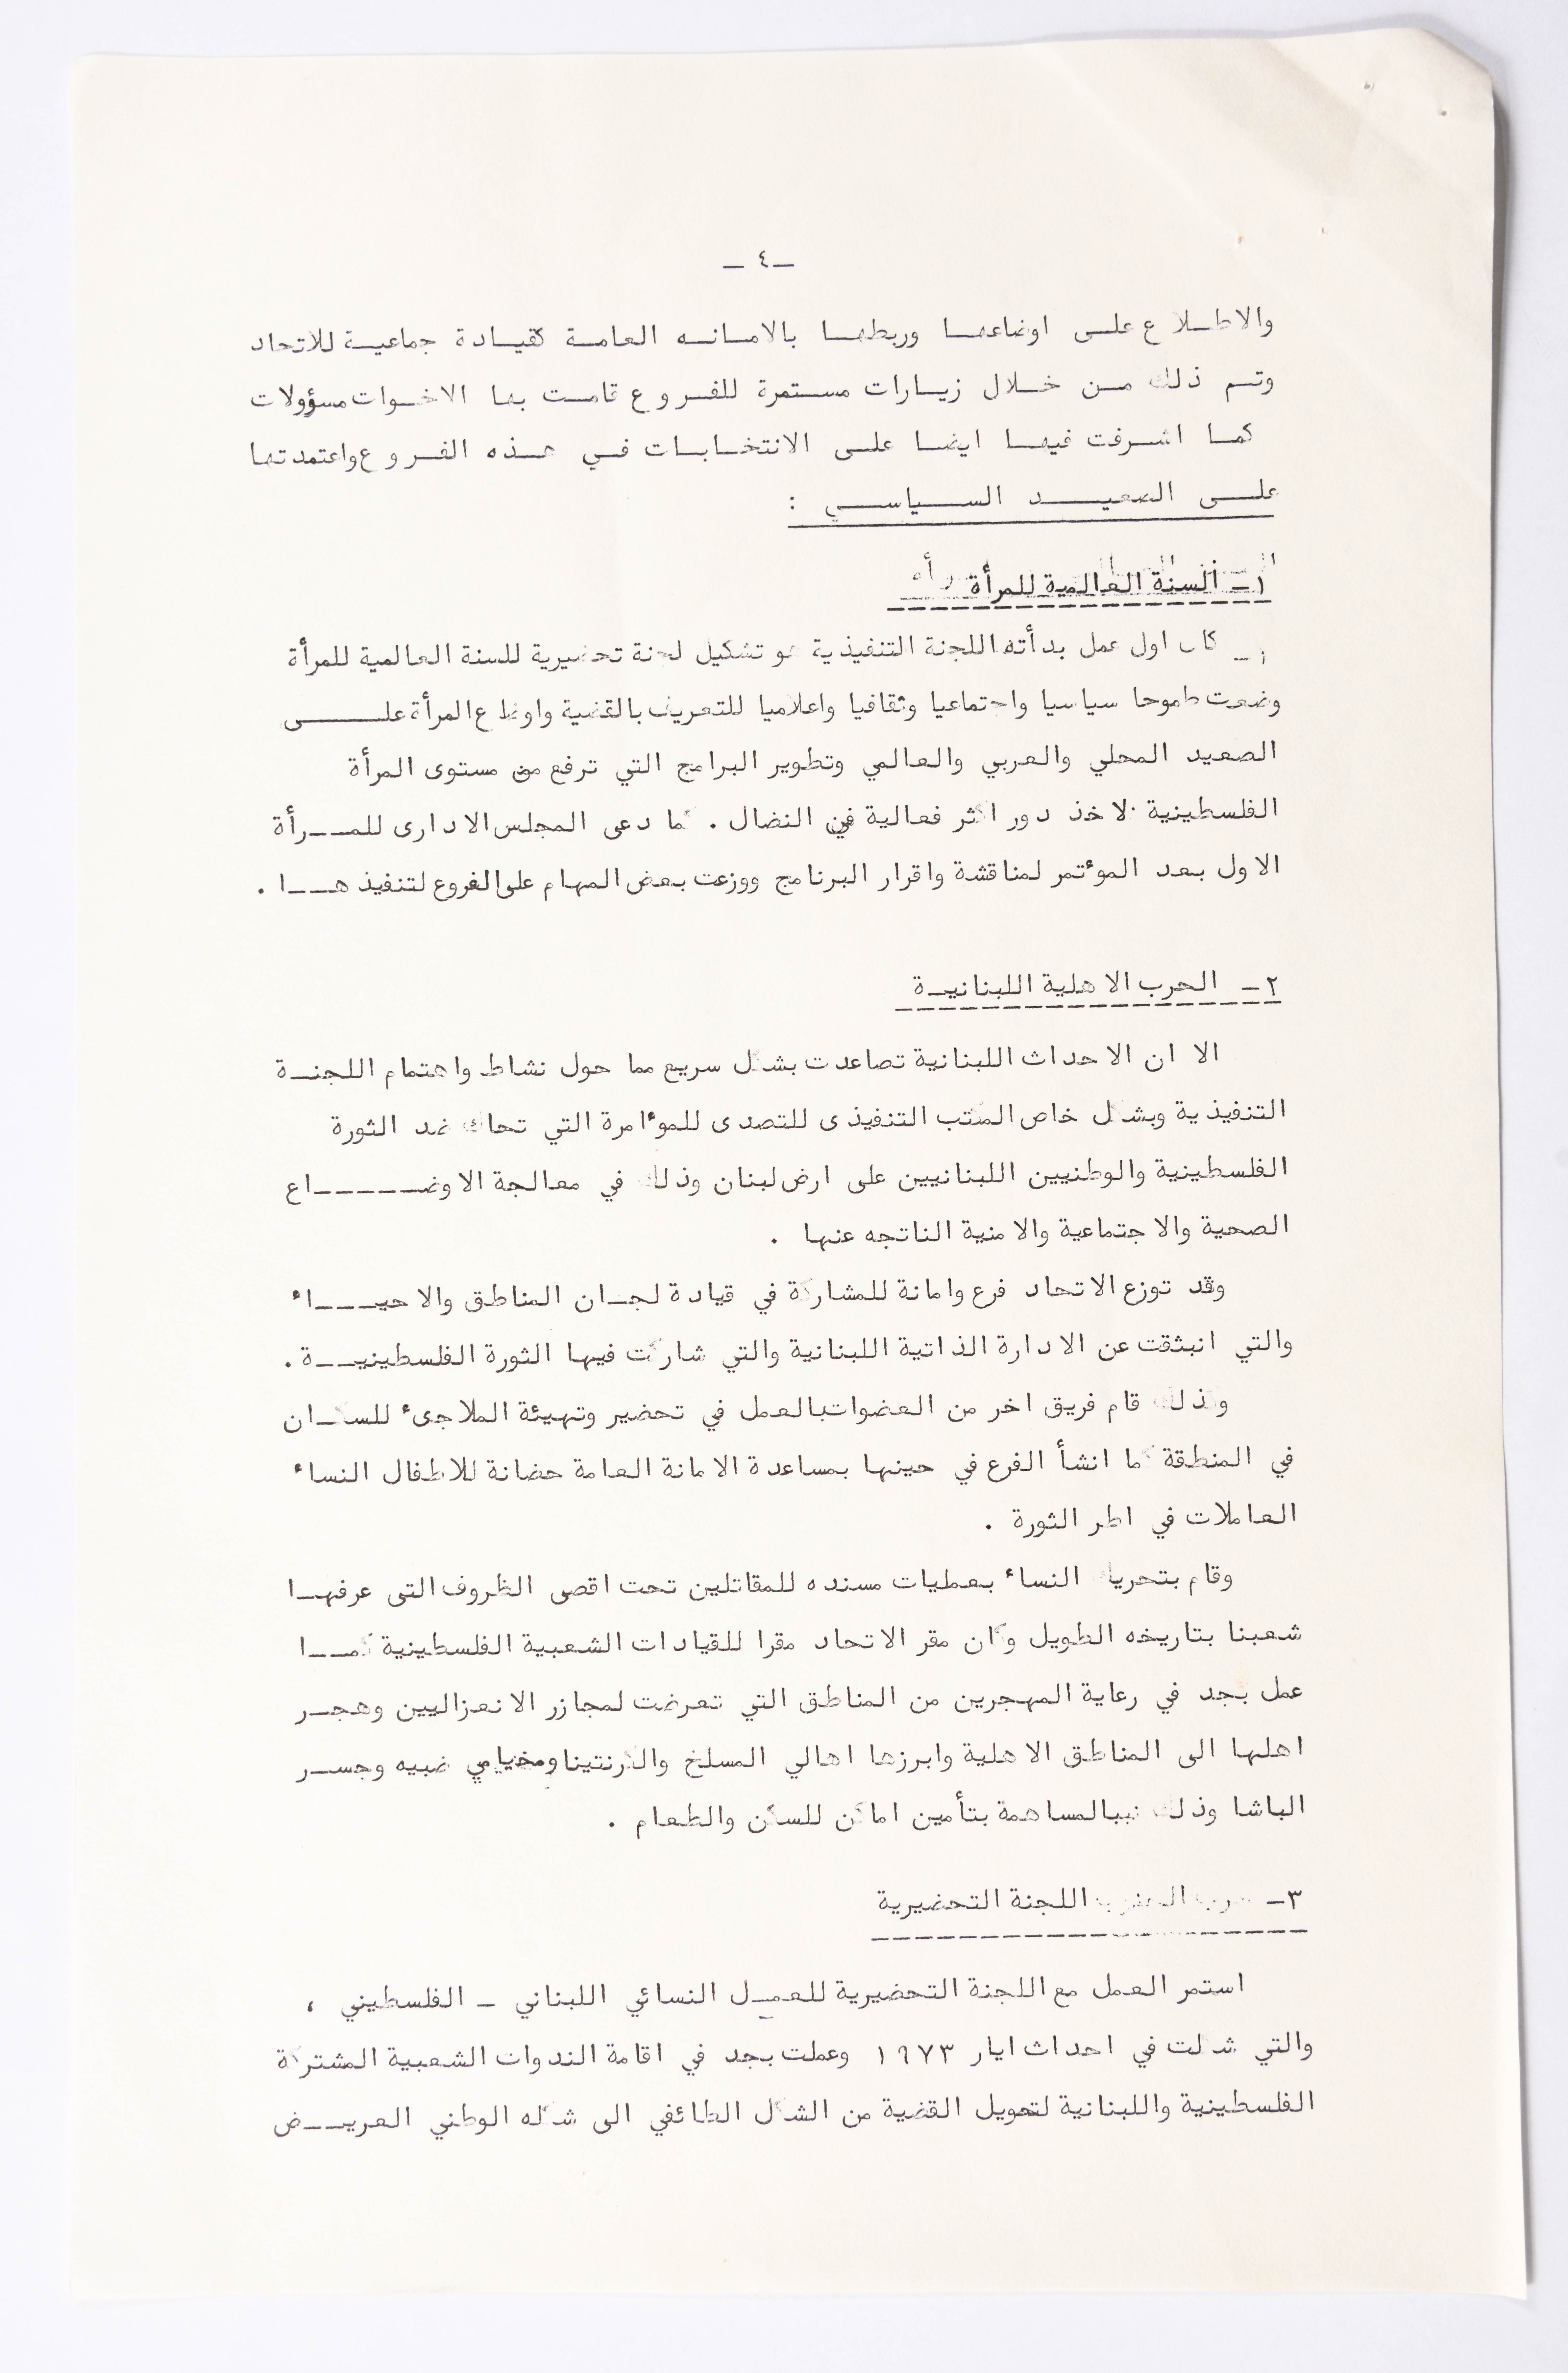 ـ٤ ـ
والاطـلاع علـى اوضاعهـا وربطهـا بالامـانـه العامـة كقيـادة جماعيـة للاتحاد
وتـم ذلك مـن خـلال زيـارات مسـتمرة للفـروع قامـت بها الاخـوات مسؤولات
كمـا اشـرفت فيهـا ايضـا علـى الانتخـابـات فـي هـذه الفـروع واعتمدتها
علـى الصعيـد السـياسـي :
١ـ السنة العالمية للمرأة
١ـ كان اول عمل بدأته اللجنة التنفيذية هو تشكيل لجنة تحضيرية للسنة العالمية للمرأة
وضعت طموحا سياسيا واجتماعيا وثقافيا واعلاميا للتعريف بالقضية واوضاع المرأة علـــى
الصعيد المحلي والعربي والعالمي وتطوير البرامج التي ترفع من مستوى المرأة
الفلسطينية لاخذ دور اكثر فعالية في النضال . كما دعى المجلس الادارى للمــرأة
الاول بعد المؤتمر لمناقشة واقرار البرنامج ووزعت بعض المهام على الفروع لتنفيذهــا .
٢ـ الحرب الاهلية اللبنانيـة
الا ان الاحداث اللبنانية تصاعدت بشكل سريع مما حول نشاط واهتمام اللجنـة
التنفيذية وبشكل خاص المكتب التنفيذى للتصدى للمؤامرة التي تحاك ضد الثورة
الفلسطينية والوطنيين اللبنانيين على ارض لبنان وذلك في معالجة الاوضـــــاع
الصحية والاجتماعية والامنية الناتجه عنها .
وقد توزع الاتحاد فرع وامانة للمشاركة في قيادة لجـان المناطق والاحيــاء
والتي انبثقت عن الادارة الذاتية اللبنانية والتي شاركت فيها الثورة الفلسطينيــة .
وكذلك قام فريق اخر من العضوات بالعمل في تحضير وتهيئة الملاجىء للسكـان
في المنطقة كما انشأ الفرع في حينها بمساعدة الامانة العامة حضانة للاطفال النساء
العاملات في اطر الثورة .
وقام بتحريك النساء بعطيات مسنده للمقاتلين تحت اقصى الظروف التى عرفهـا
شعبنا بتاريخه الطويل وكان مقر الاتحاد مقرا للقيادات الشعبية الفلسطينية كمــا
عمل بجد في رعاية المهجرين من المناطق التي تعرضت لمجازر الانعزاليين وهجـر
اهلها الى المناطق الاهلية وابرزها اهالي المسلخ والكرنتينا ومخيامي ضبيه وجسـر
الباشا وذلك بالمساهمة بتأمين اماكن للسكن والطعام .
٣ـ اللجنة التحضيرية
استمر العمل مع اللجنة التحضيرية للعمـل النسائي اللبناني ـ الفلسطيني ،
والتي شكلت في احداث ايار ١٩٧٣ وعملت بجد في اقامة الندوات الشعبية المشتركة
الفلسطينية واللبنانية لتحويل القضية من الشكل الطائفي الى شكله الوطني العريــض